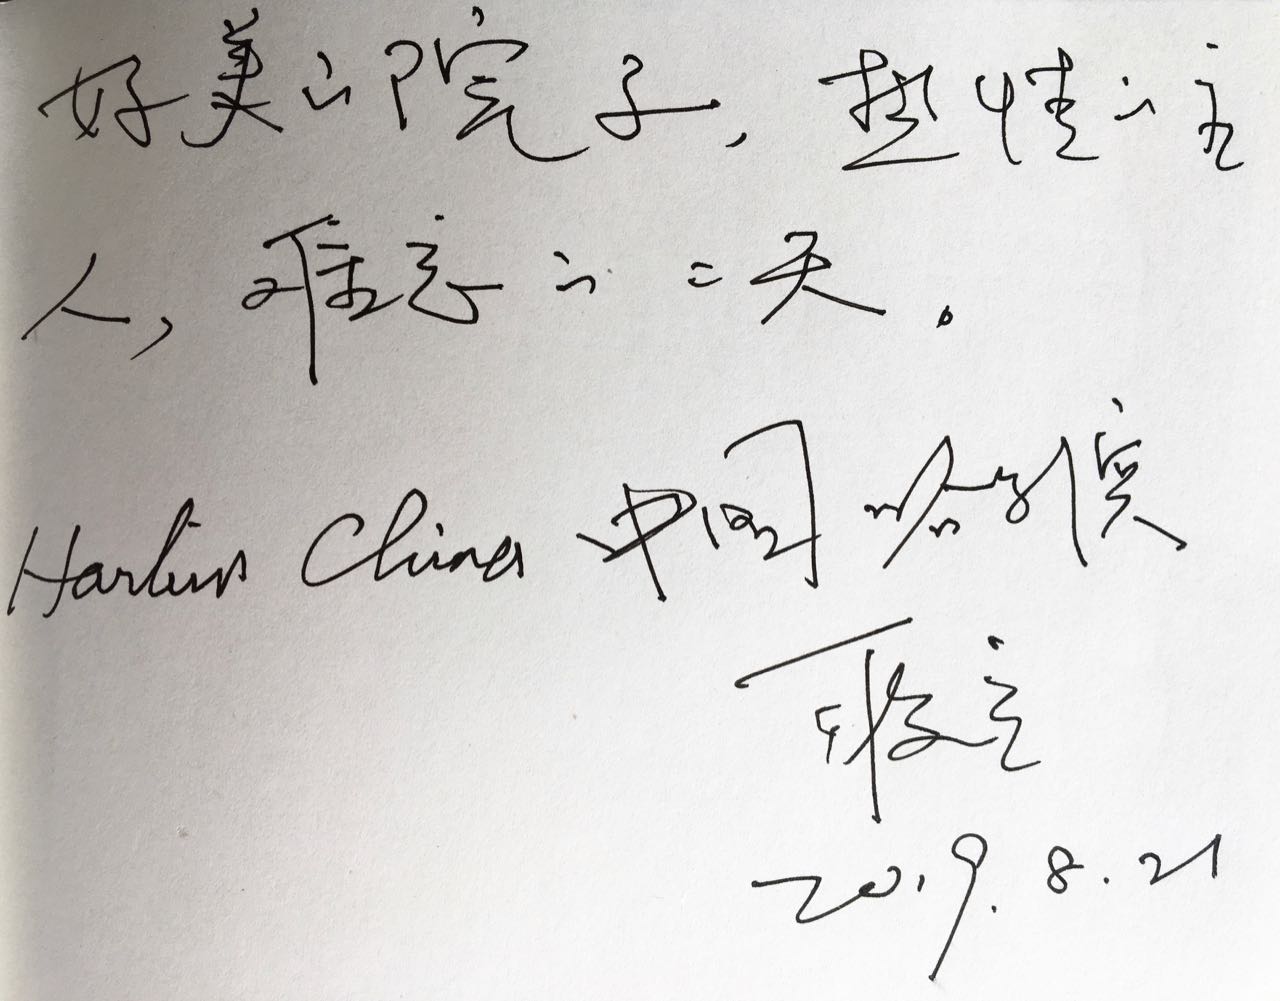 好美的院子，热情的主
人，难忘的二天。
Harbin China 中国哈尔滨
2019.8.21